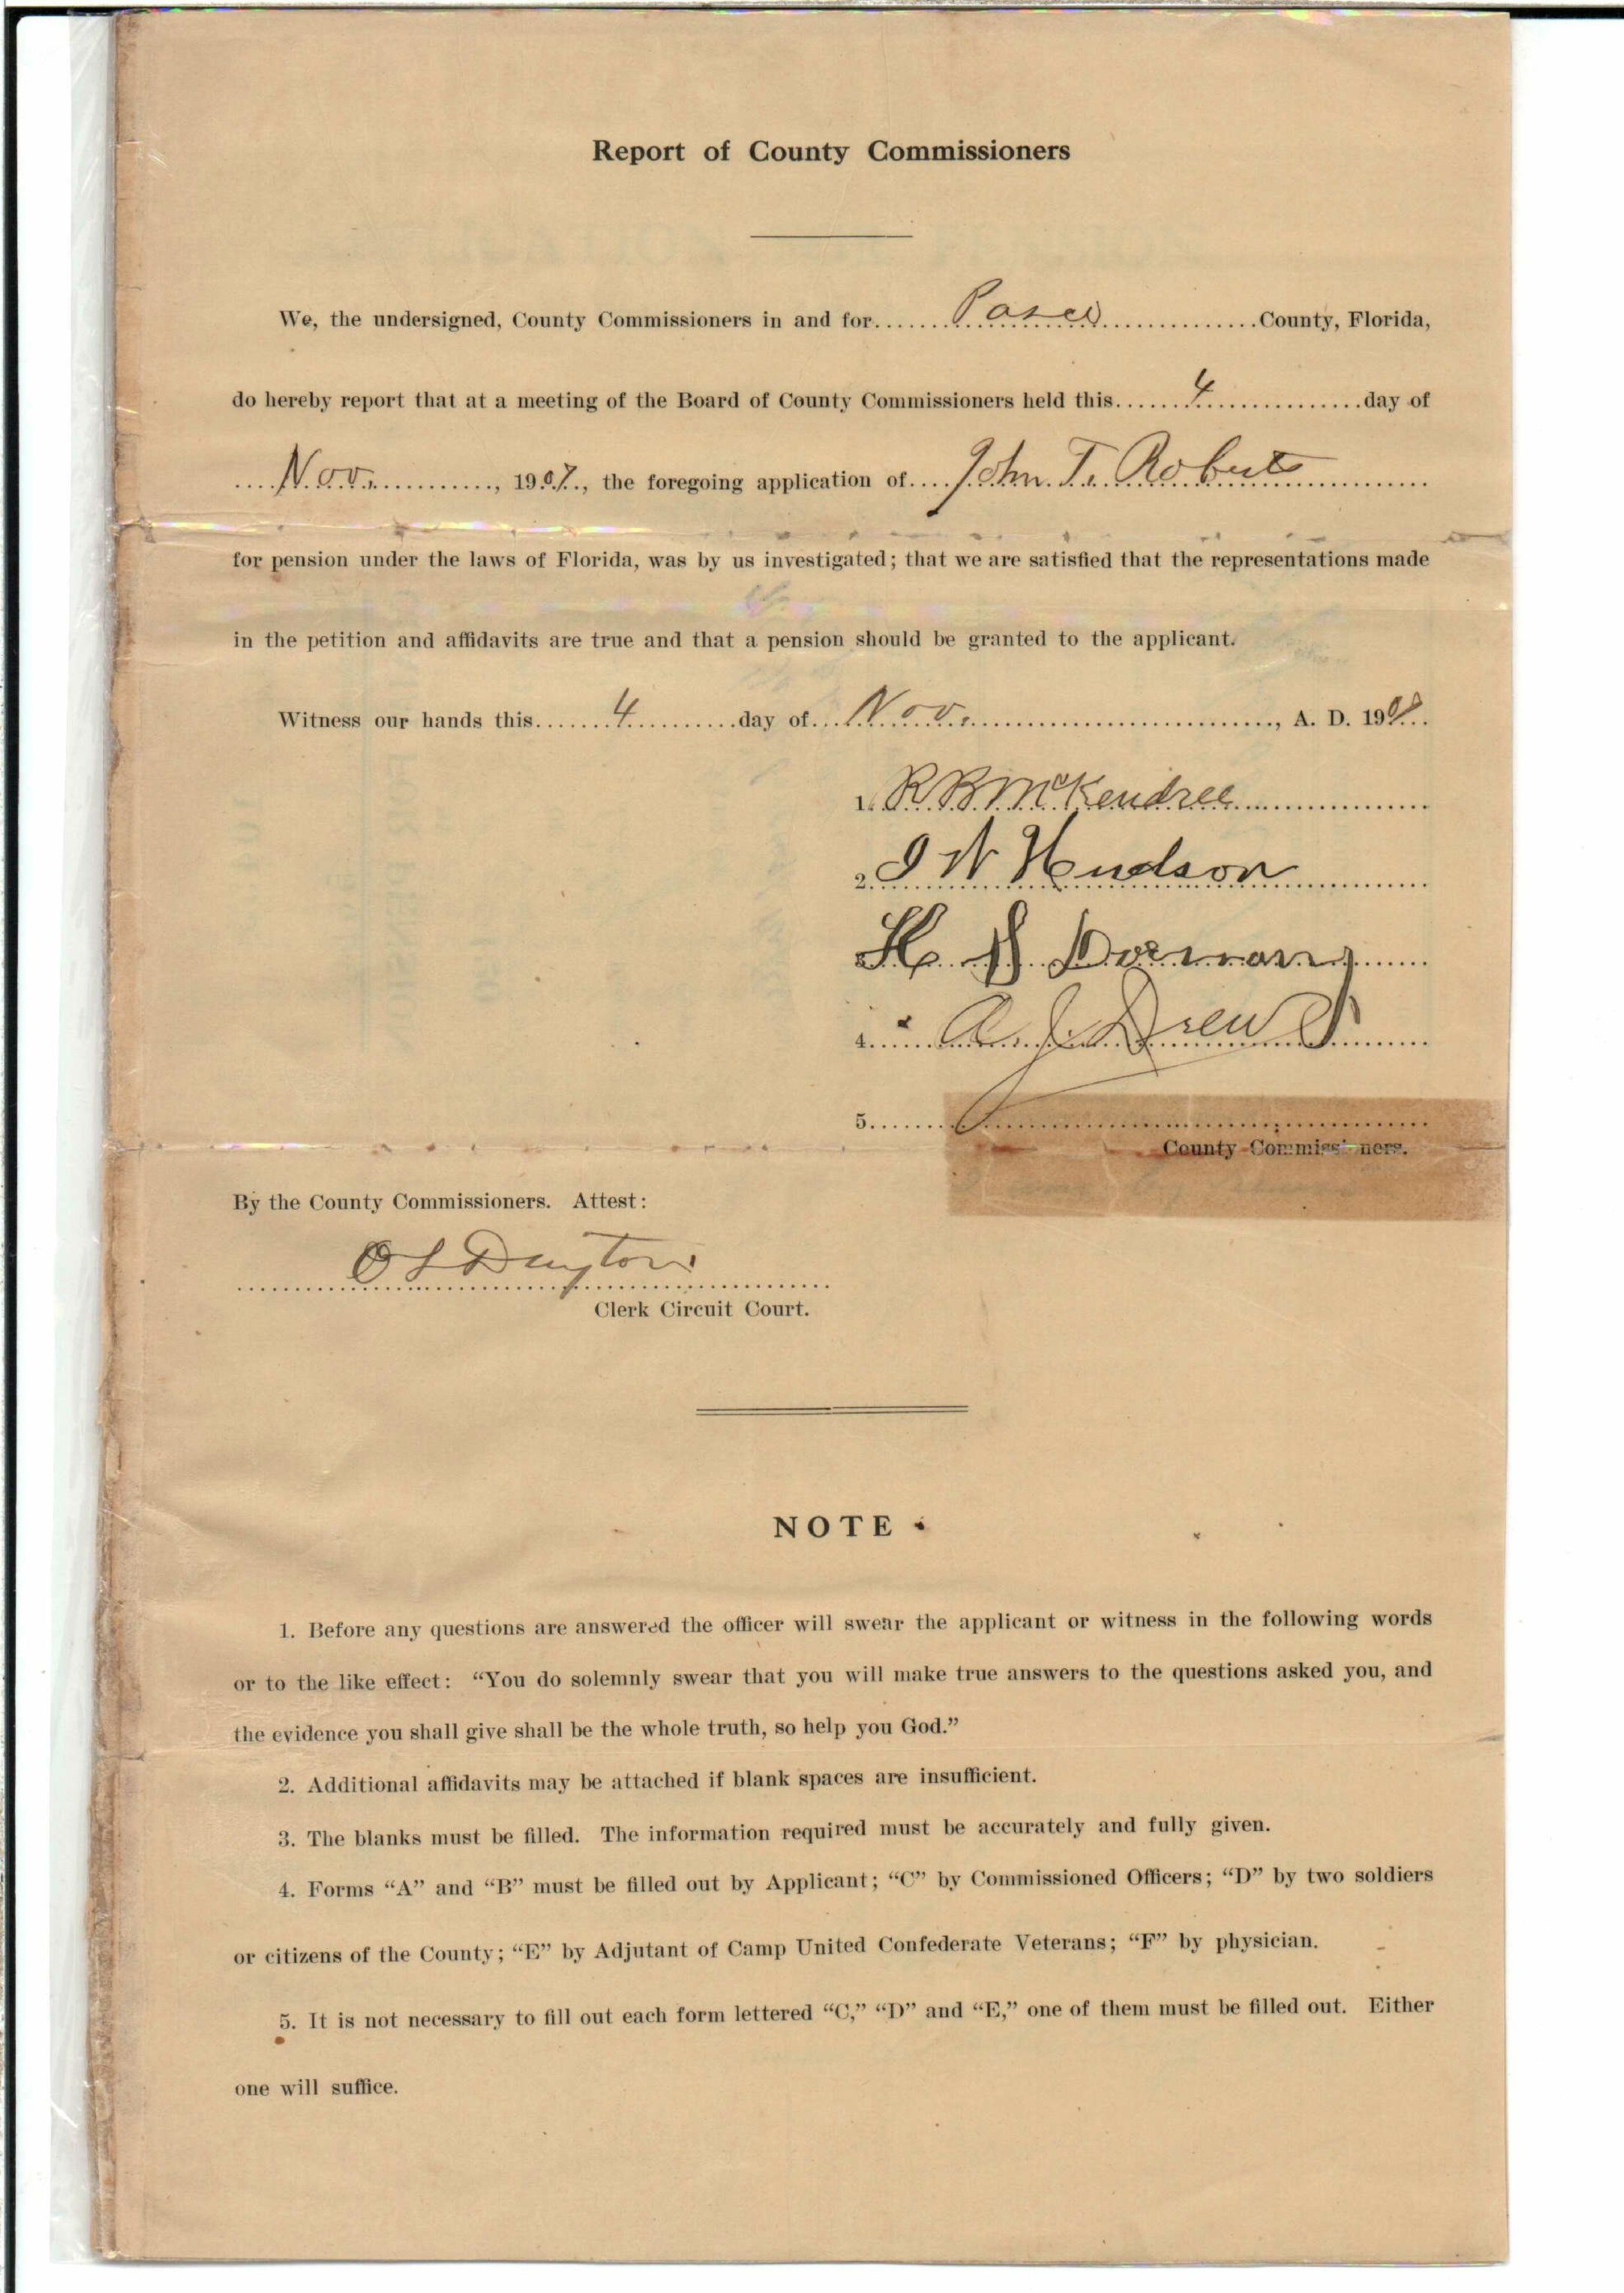 Report of County Commissioners
We, the undersigned, County Commissioners in and for.......Pasco..............County, Florida,
do hereby report that at a meeting of the Board of County Commissioners held this......4...............day of
....Nov..........., 1907., the foregoing application of....John T. Roberts..............
for pension under the laws of Florida, was by us investigated; that we are satisfied that the representations made
in the petition and affidavits are true and that a pension should be granted to the applicant.
Witness our hands this.......4.........day of...Nov..............................., A. D. 190
1. R B McKendree
2. I W Hudson
4. A. J. Drew
5.
County Commissioners.
By the County Commissioners. Attest:
O L Dayton
Clerk Circuit Court.
NOTE
1. Before any questions are answered the officer will swear the applicant or witness in the following words
or to the like effect: “You do solemnly swear that you will make true answers to the questions asked you, and
the evidence you shall give shall be the whole truth, so help you God.”
2. Additional affidavits may be attached if blank spaces are insufficient.
3. The blanks must be filled. The information required must be accurately and fully given.
4. Forms “A” and “B” must be filled out by Applicant; “C” by Commissioned Officers; “D” by two soldiers
or citizens of the County; “E” by Adjutant of Camp United Confederate Veterans; “F” by physician.
5. It is not necessary to fill out each form lettered “C,” “D” and “E,” one of them must be filled out. Either
one will suffice.